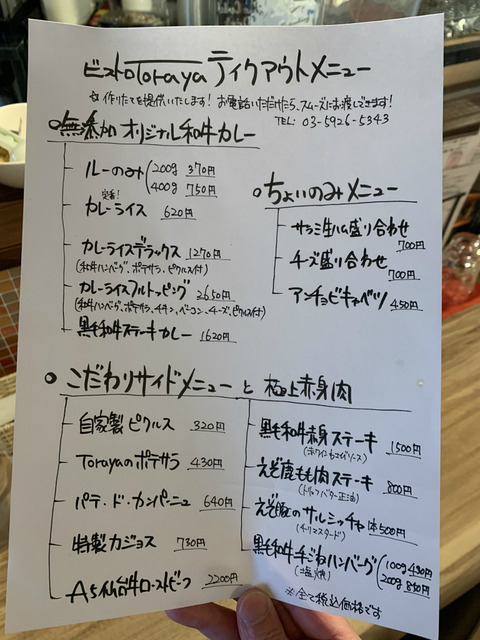 ビストロToraya テイクアウトメニュー
☆作りたてを提供いたします！お電話いただけたら、スムーズにお渡しできます！
TEL: 03-5926-5343
無添加 オリジナル和牛カレー
ルーのみ 200g 370円
400g 750円
定番！
カレーライス 620円
カレーライスデラックス 1270円
(和牛ハンバーグ、ポテサラ、ピクルス付)
カレーライスフルトッピング 2650円
(和牛ハンバーグ、ポテサラ、チキン、ベーコン、チーズ、ピクルス付)
黒毛和牛ステーキカレー 1620円
ちょいのみメニュー
サラミ生ハム盛り合わせ
700円
チーズ盛り合わせ
700円
アンチョビキャベツ 450円
こだわりサイドメニューと 極上赤身肉
自家製ピクルス 320円
Torayaのポテサラ 430円
パテ・ド・カンパーニュ 640円
特製カジョス 730円
A5仙台牛ローストビーフ 2200円
黒毛和牛赤身ステーキ
1500円
えぞ鹿もも肉ステーキ
(トリュフバター正油) 800円
えぞ豚のサルシッチャ 1本500円
黒毛和牛手ごねハンバーグ 100g 430円
(塩焼) 200g 850円
※全て税込価格です